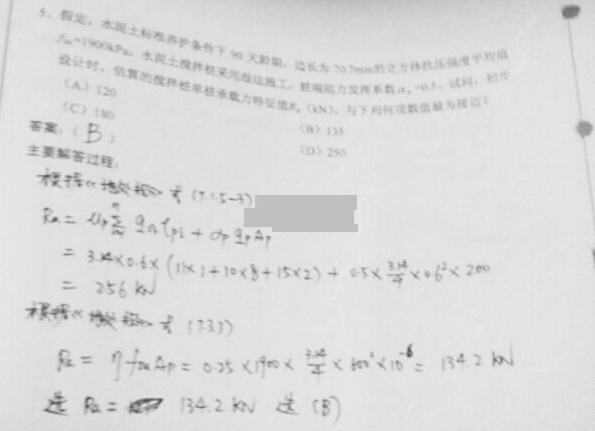 5、假定,水泥土标准养护条件下90天龄期,边长为70.7mm的立方体抗压强度平均值
fcu=1900kPa,水泥土搅拌桩采用湿法施工,桩端阻力发挥系数αp=0.5。试问,初步
设计时,估算的搅拌桩单桩承载力特征值Ra(kN),与下列何项数值最为接近?
(A)120
(B)135
(C)180
(D)250
答案:(B)
主要解答过程:
根据《地处规》式(7.1.5-3)
Ra = up Σ qsi lpi + αp qp Ap
= 3.14×0.6×(11×1+10×8+15×2)+0.5×3.14/4×0.6²×200
= 256 kN
根据《地处规》式(7.3.3)
Ra = η fcu Ap = 0.25×1900×3.14/4×600²×10⁻⁶= 134.2 kN
选 Ra = 134.2 kN 选(B)